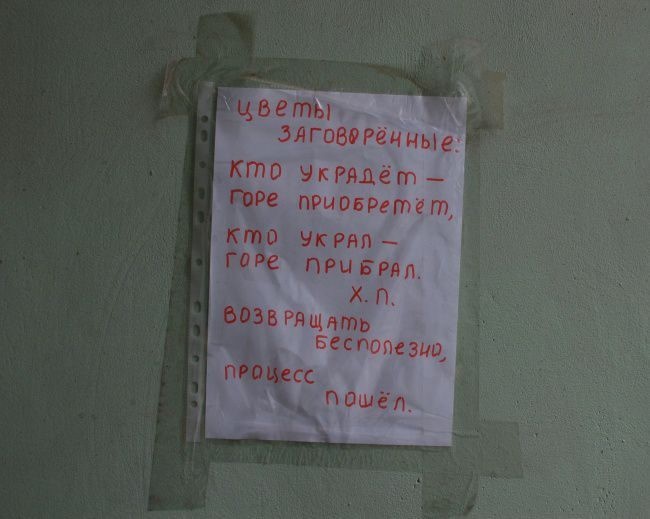 ЦВЕТЫ
ЗАГОВОРЁННЫЕ:
КТО УКРАДЁТ —
ГОРЕ ПРИОБРЕТЁТ,
КТО УКРАЛ —
ГОРЕ ПРИБРАЛ.
Х.П.
ВОЗВРАЩАТЬ
БЕСПОЛЕЗНО,
ПРОЦЕСС
ПОШЁЛ.